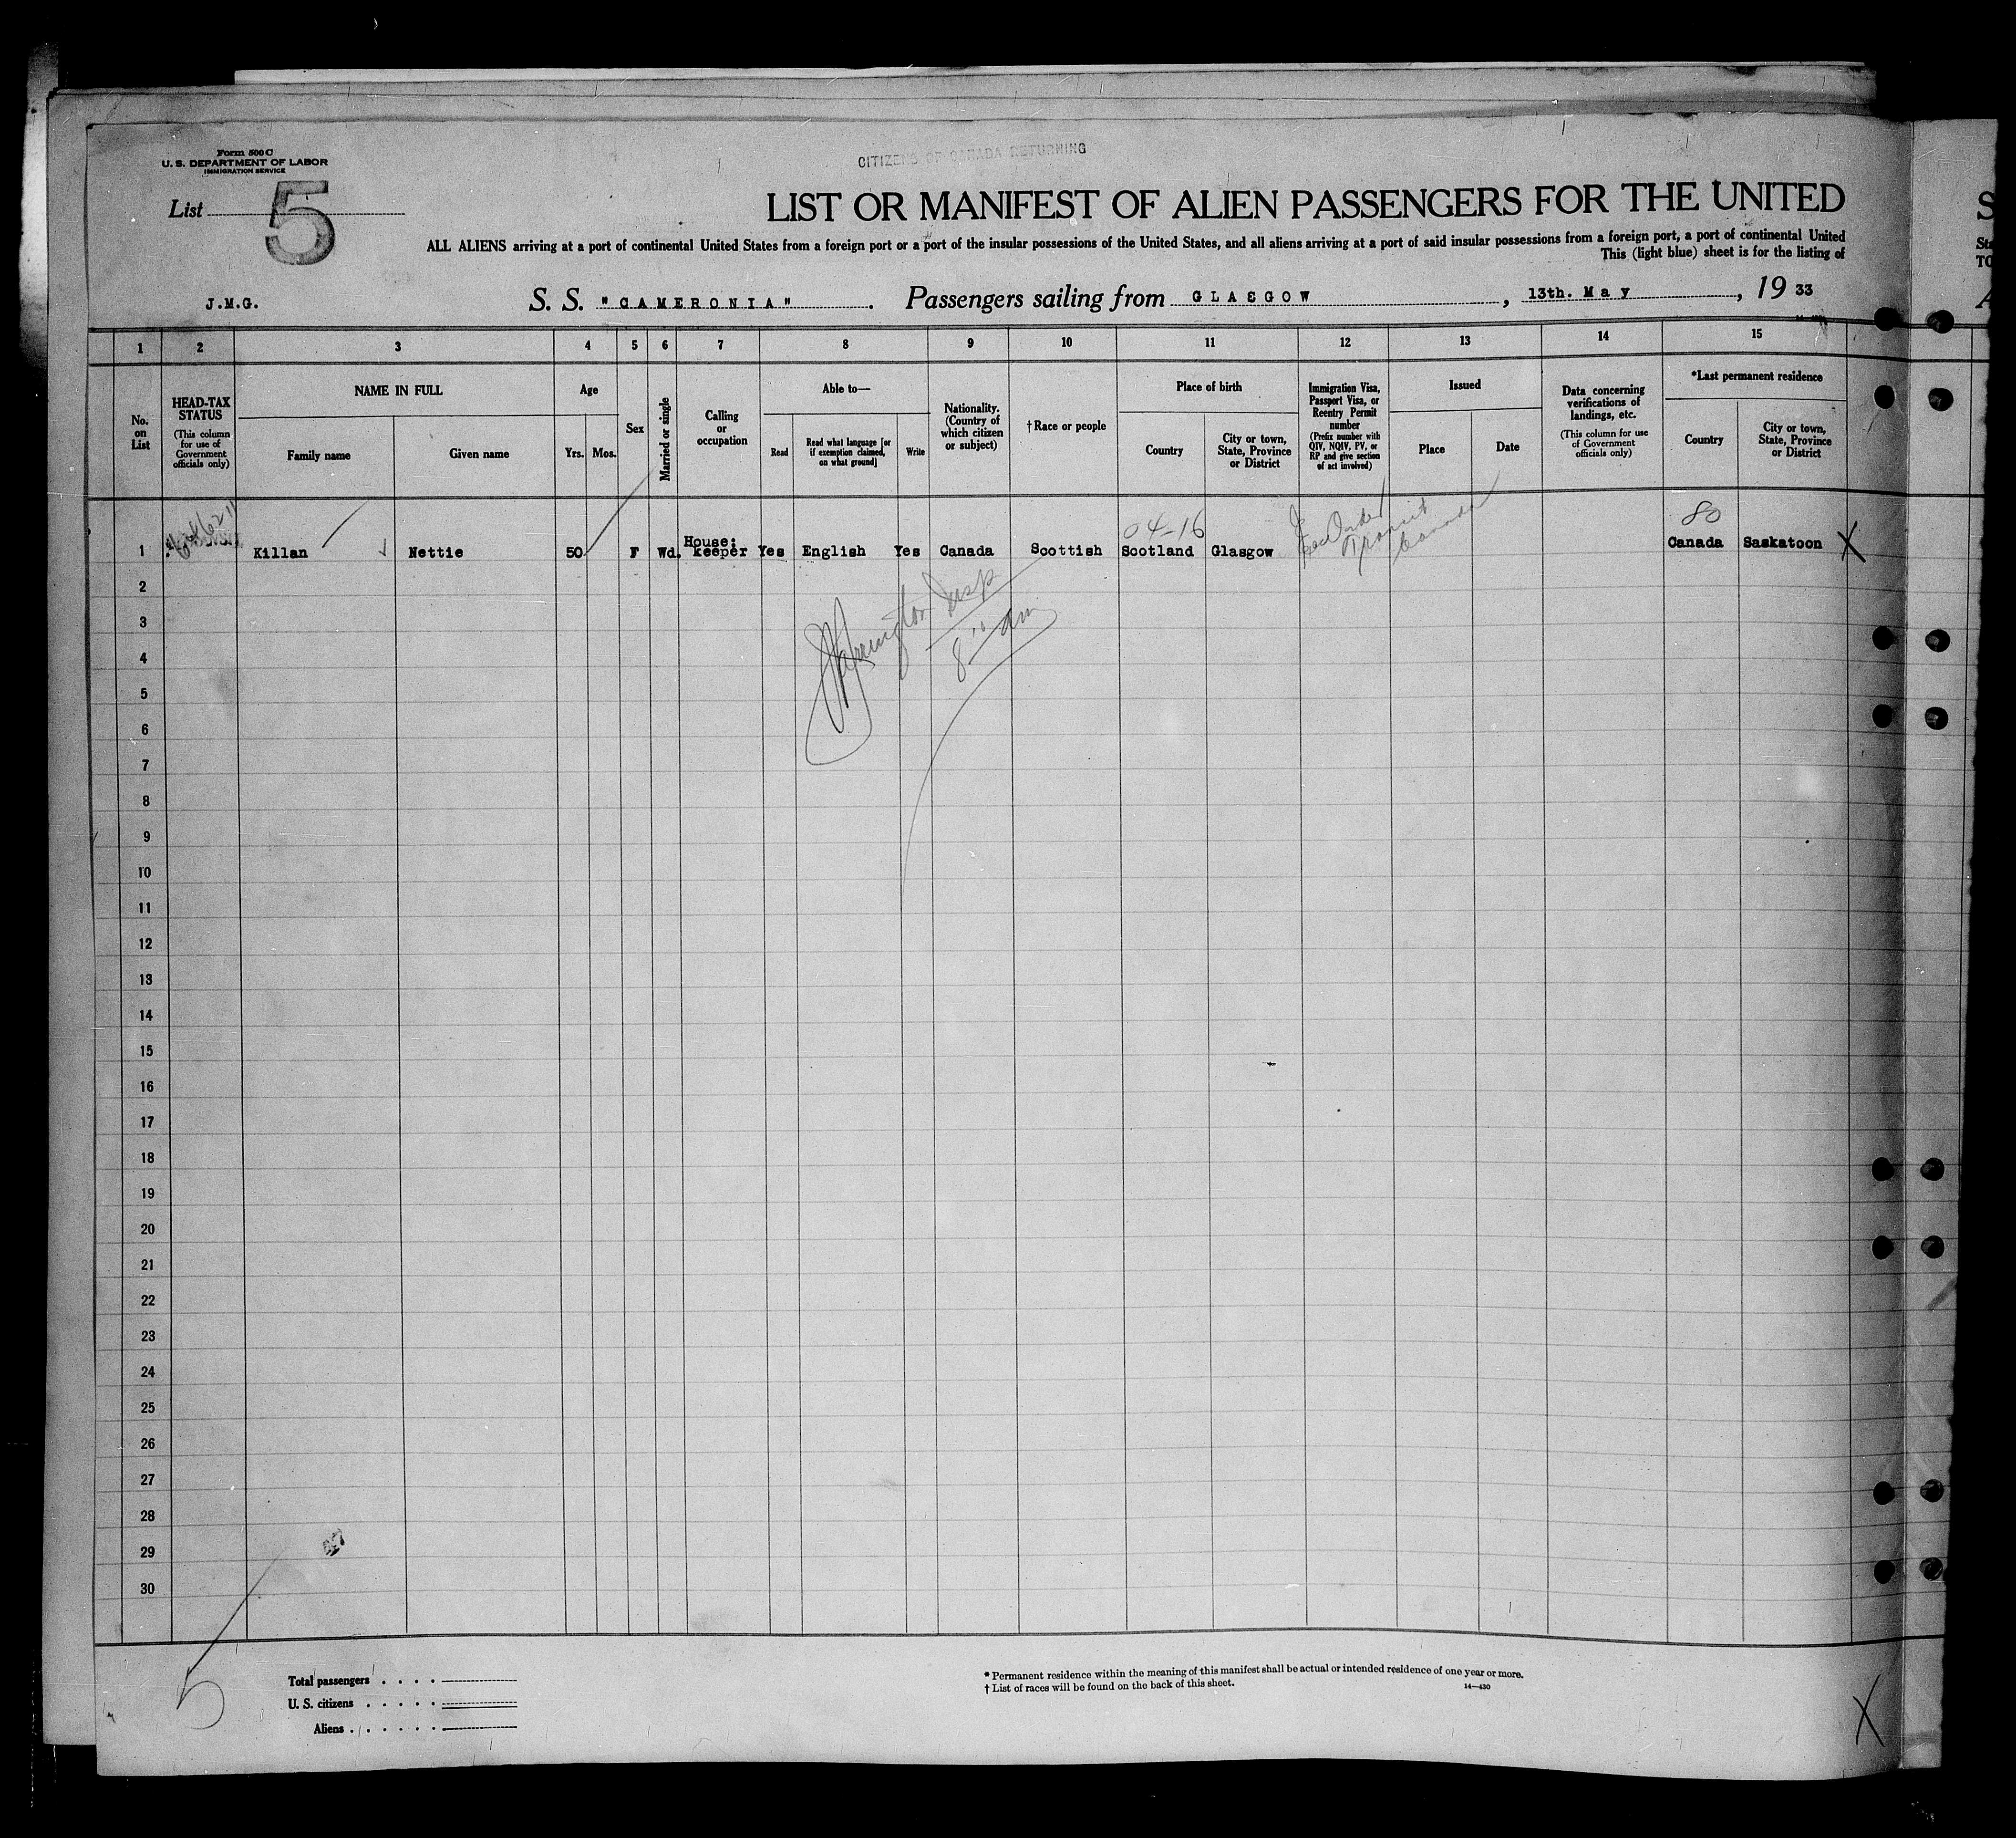 Form 500 C
U. S. DEPARTMENT OF LABOR
IMMIGRATION SERVICE
CITIZENS OF CANADA RETURNING
List 5
LIST OR MANIFEST OF ALIEN PASSENGERS FOR THE UNITED
ALL ALIENS arriving at a port of continental United States from a foreign port or a port of the insular possessions of the United States, and all aliens arriving at a port of said insular possessions from a foreign port, a port of continental United
This (light blue) sheet is for the listing of
J.M.G.
S. S. "CAMERONIA". Passengers sailing from GLASGOW, 13th. May, 19 33
1 2 3 4 5 6 7 8 9 10 11 12 13 14 15
No. on List
HEAD-TAX STATUS
(This column for use of Government officials only)
NAME IN FULL
Family name
Given name
Age
Yrs. Mos.
Sex
Married or single
Calling or occupation
Able to—
Read
Read what language [or if exemption claimed, on what ground]
Write
Nationality. (Country of which citizen or subject)
†Race or people
Place of birth
Country
City or town, State, Province or District
Immigration Visa, Passport Visa, or Reentry Permit number
(Prefix number with QIV, NQIV, PV, or RP and give section of act involved)
Issued
Place
Date
Data concerning verifications of landings, etc.
(This column for use of Government officials only)
*Last permanent residence
Country
City or town, State, Province or District
04-16
80
Transit
Canada
1 Killan Nettie 50 F Wd. House: keeper Yes English Yes Canada Scottish Scotland Glasgow Canada Saskatoon X
Insp
8 10 am
2
3
4
5
6
7
8
9
10
11
12
13
14
15
16
17
18
19
20
21
22
23
24
25
26
27
28
29
30
5
Total passengers . . . .
U. S. citizens . . . . .
Aliens . . . . . .
* Permanent residence within the meaning of this manifest shall be actual or intended residence of one year or more.
† List of races will be found on the back of this sheet.
14—430
X